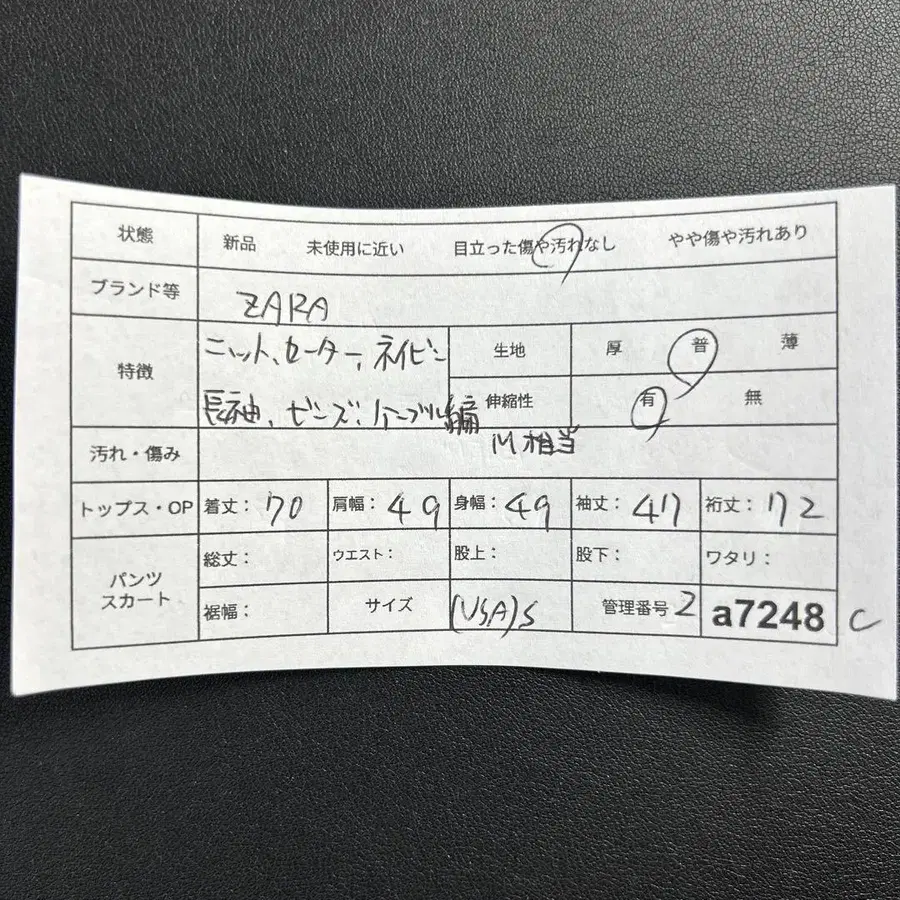 状態 新品 未使用に近い 目立った傷や汚れなし やや傷や汚れあり
ブランド等 ZARA
特徴 ニット、セーター、ネイビー 生地 厚 普 薄
長袖、ビーズ、ケーブル編 伸縮性 有 無
汚れ・傷み M相当
トップス・OP 着丈: 70 肩幅: 49 身幅: 49 袖丈: 47 裄丈: 72
パンツ スカート 総丈: ウエスト: 股上: 股下: ワタリ:
裾幅: サイズ (USA)S 管理番号 2 a7248 c